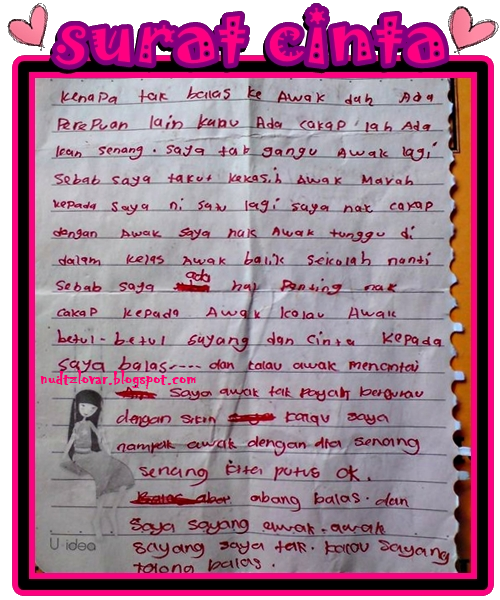 surat cinta
kenapa tak balas ke Awak dah Ada
Perepuan lain kalau Ada cakap lah Ada
kan senang. saya tab gangu Awak lagi
sebab saya takut kekasih Awak Marah
kepada saya ni satu lagi saya nak cakap
dengan Awak saya nak Awak tunggu di
dalam kelas Awak balik seikolah nanti
sebab saya ada hal Penting nak
cakap kepada Awak kalau Awak
betul-betul sayang dan cinta kepada
saya balas---- dan kalau awak mencintai
nudtzlovar.blogspot.com
saya awak tak payah bergurau
dengan kalau saya
nampak awak dengan dia senang
senang kita putus ok.
abang balas. dan
Saya sayang awak. awak
sayang saya tak. kalau sayang
tolong balas.
U-idea